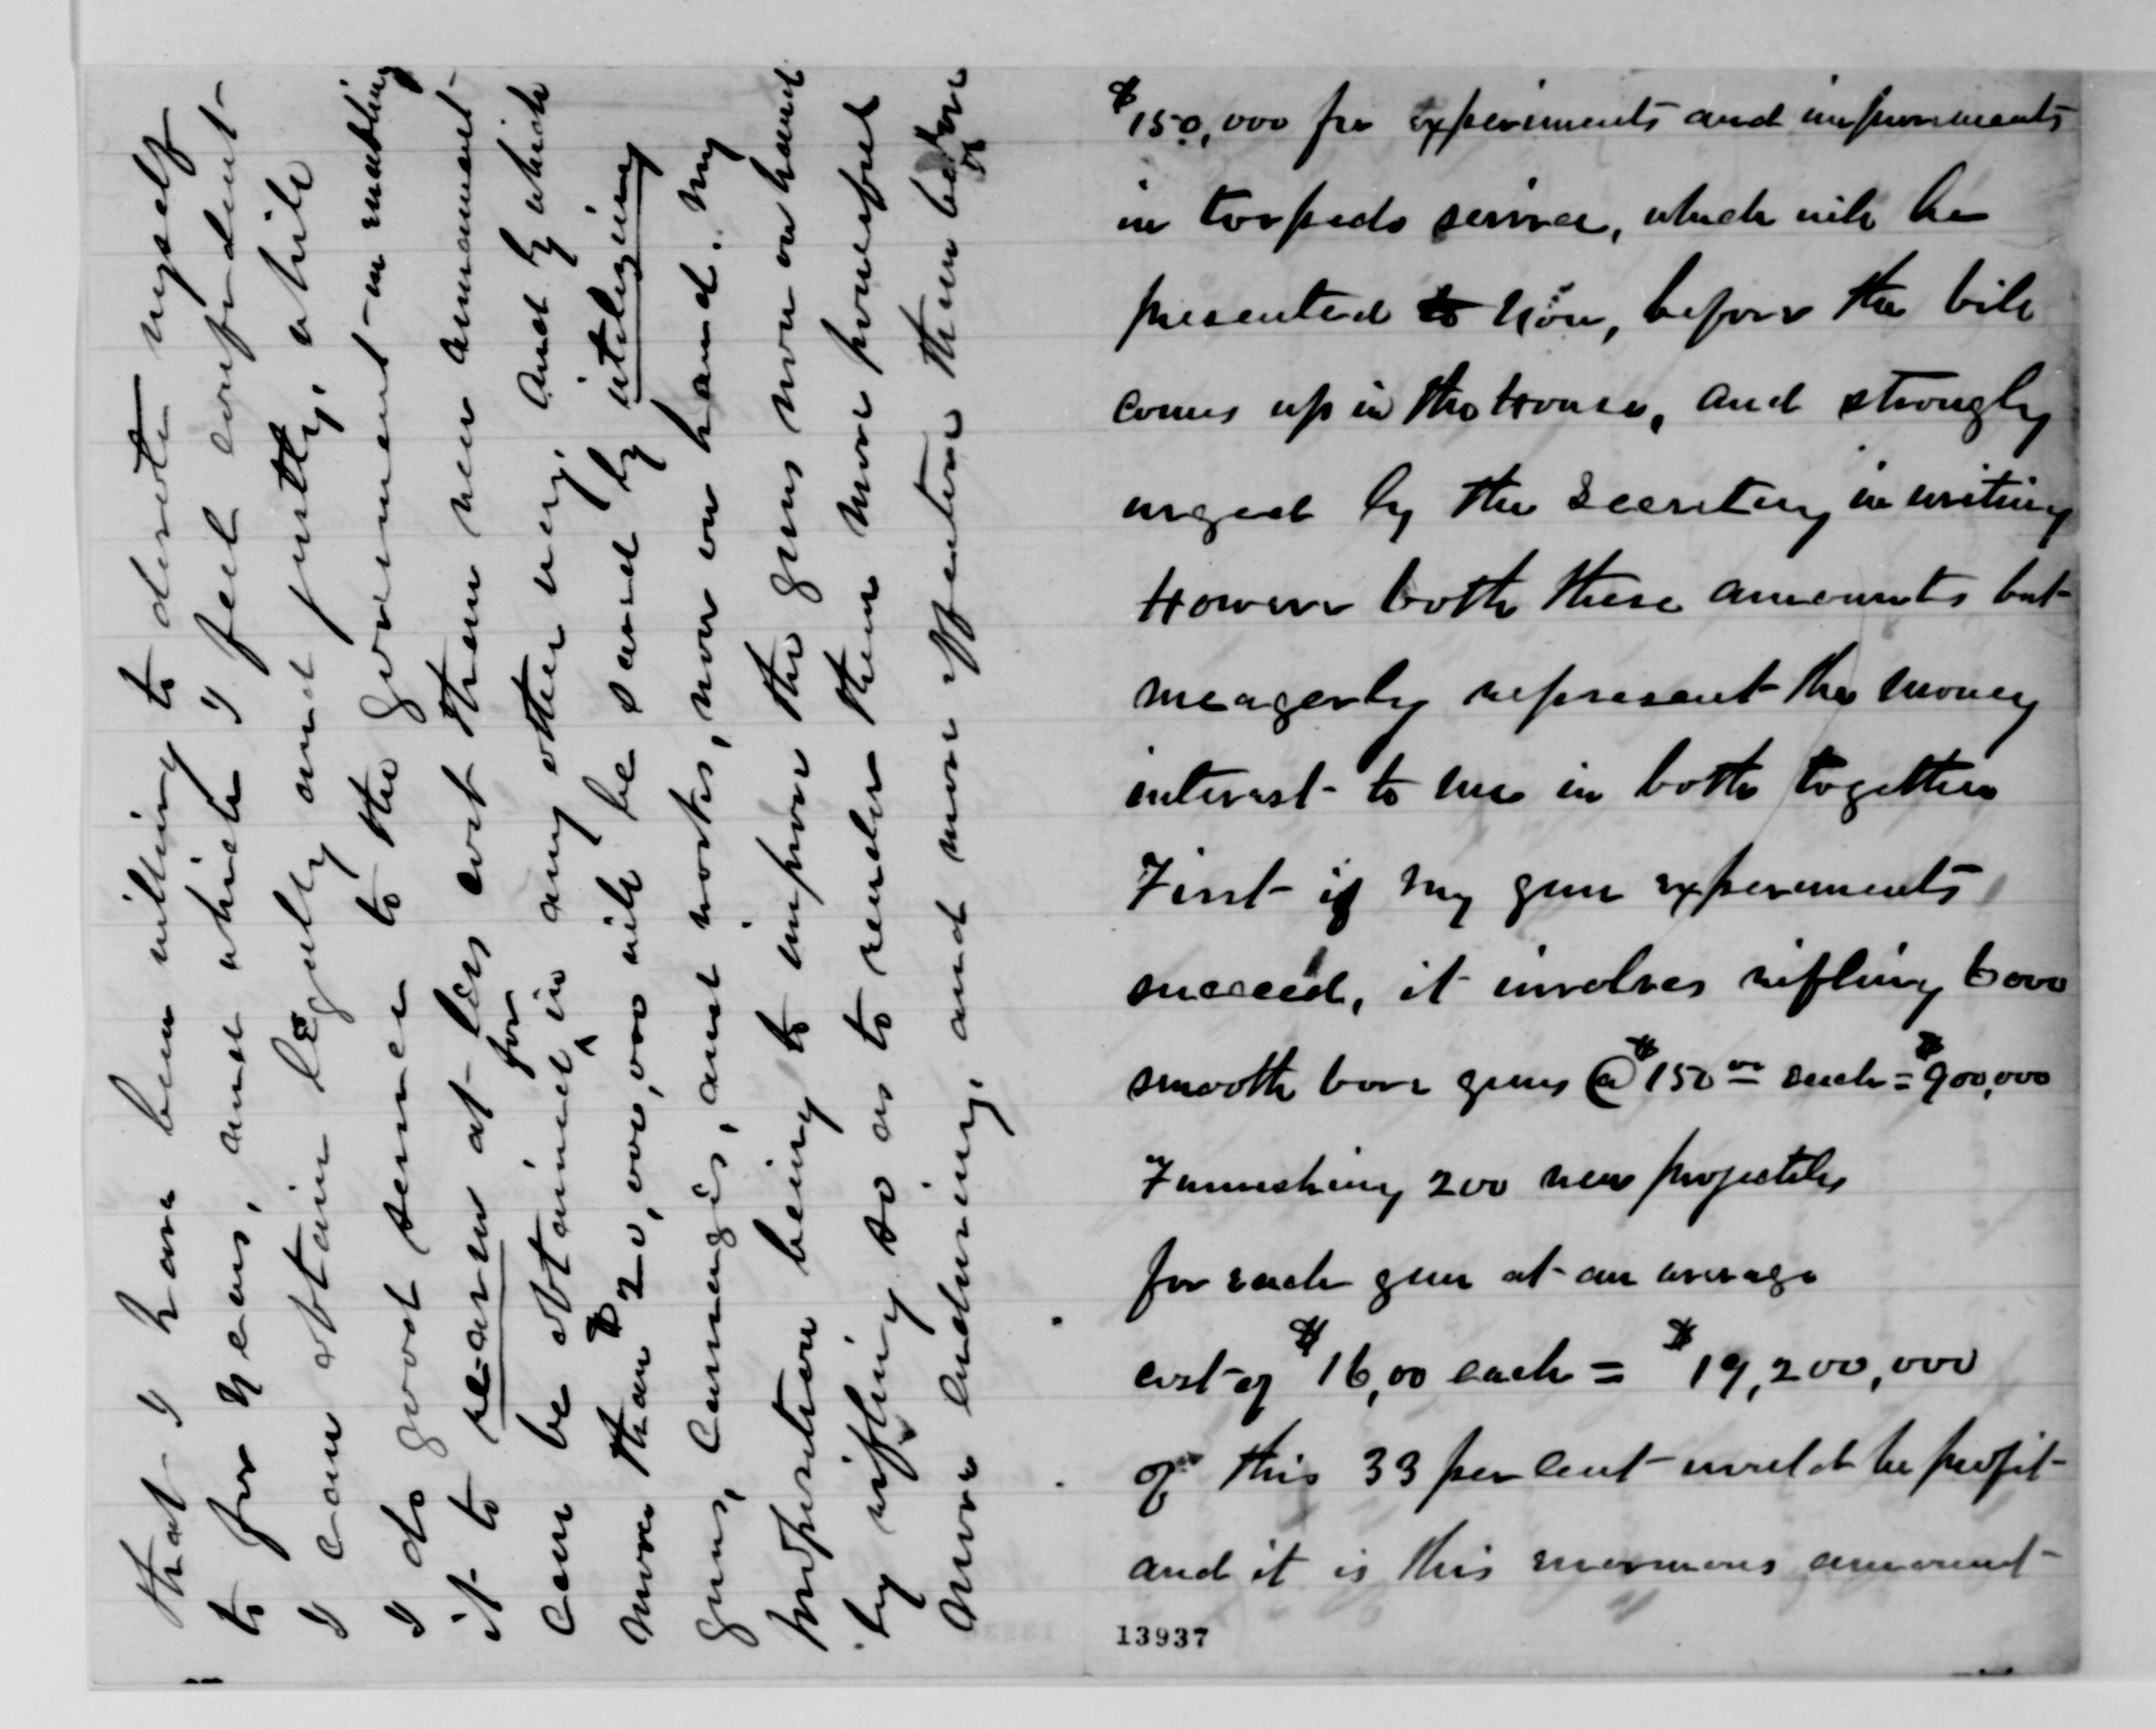 $150,000 for experiments and improvements
in torpedo service, which will be
presented to Hon, before the bill
comes up in the House, and strongly
urged by the Secretary in writing
However both these amounts but
meagerly represent the money
interest to me in both together
First if my gun experiments
succeed, it involves rifling 6000
smooth bore guns @ $150 00 each = $900,000
Furnishing 200 new projectiles
for each gun at an average
cost of $16,00 each = $19,200,000
of this 33 per cent would be profit
and it is this enormous amount
that I have been willing to devote myself
to for years, and which I feel confident
I can obtain legally and justly, while
I do good service to the Government in enabling
it to re-arm at less cost them new armament
can be obtained for in any other way, and by which
more than $20,000,000 will be saved by utilizing
guns, carriages, and works, now on hand. My
proposition being to improve the guns now on hand
by rifling so as to render them more powerful
more enduring, and more effective than before
13937